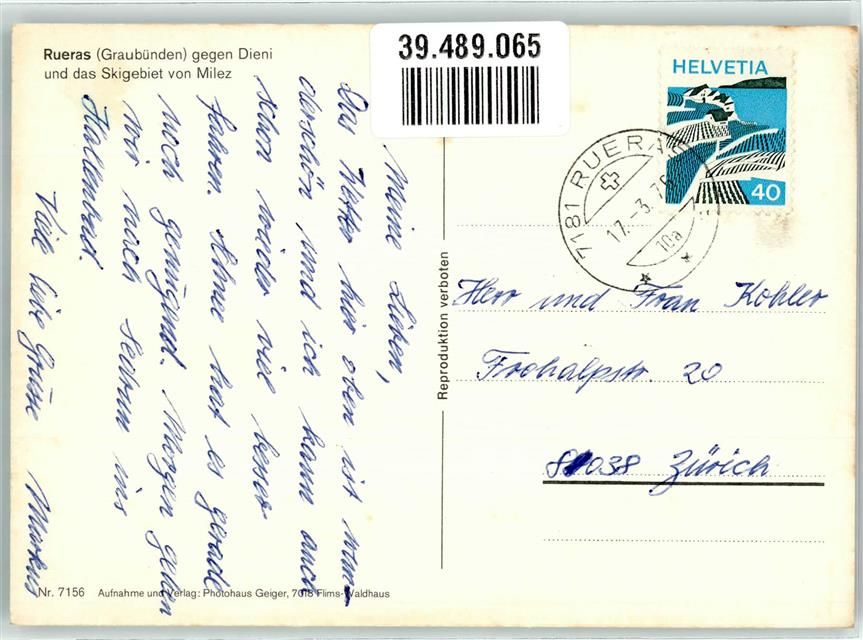 Rueras (Graubünden) gegen Dieni
und das Skigebiet von Milez
39.489.065
HELVETIA
40
7181 RUERAS
17.-3.76
10a
Meine Lieben,
Das Wetter hier oben ist wun-
derschön und ich kann auch
schon wieder viel besser
fahren. Schnee hat es gerade
noch genügend. Morgen gehen
wir nach Sedrun ins
Hallenbad.
Viele liebe Grüsse Markus
Reproduktion verboten
Herr und Frau Kohler
Frohalpstr. 20
8038 Zürich
Nr. 7156 Aufnahme und Verlag: Photohaus Geiger, 7018 Flims-Waldhaus